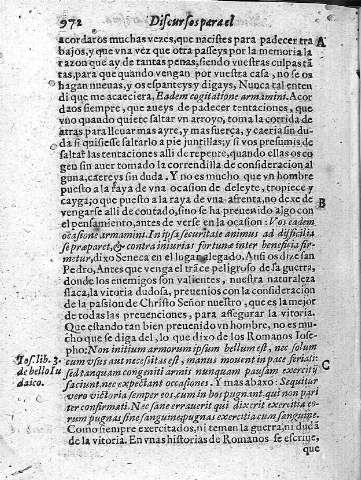 972 Discursos para el
acordaros muchas vezes, que nacistes para padecer tra
bajos, y que vna vez que otra passeys por la memoria la
razon que ay de tantas penas, siendo vuestras culpas tã
tas, para que quando vengan por vuestra casa, no se os
hagan nueuas, y os espanteys y digays, Nunca tal enten
di que me acaeciera, Eadem cogitatione armamini. Acor
daos siempre que aueys de padecer tentaciones, que
vno quando quiere saltar vn arroyo, toma la corrida de
atras para lleuar mas ayre, y mas fuerça, y caeria sin du-
da si quisiesse saltarlo a pie juntillas; si vos presumis de
saltar las tentaciones alli de repente, quando ellas os co
gen sin auer tomado la correndilla de consideracion al
guna, caereys sin duda. Y no es mucho que vn hombre
puesto a la raya de vna ocasion de deleyte, tropiece y
cayga; o que puesto a la raya de vna afrenta, no dexe de
vengarse alli de contado, sino se ha preuenido algo con
el pensamiento, antes de verse en la ocasion: Vos eadem
cogitatione armamini. In ipsa securitate animus ad difficilia
se præparet, & contra iniurias fortunæ inter beneficia fir-
metur, dixo Seneca en el lugar alegado. Ansi os dize san
Pedro, Antes que venga el trãce peligroso de la guerra,
donde los enemigos son valientes, nuestra naturaleza
flaca, la vitoria dudosa, preuenios con la consideracion
de la passion de Christo Señor nuestro, que es la mejor
de todas las preuenciones, para assegurar la vitoria.
Que estando tan bien preuenido vn hombre, no es mu-
cho que se diga del, lo que dixo de los Romanos Iose-
pho: Non initium armorum ipsum bellum est, nec solum
cum vsus aut necessitas est, manus mouent in pace feriati:
sed tanquam congeniti armis nunquam pausam exercitij
faciunt, nec expectant occasiones. Y mas abaxo: Sequitur
vero victoria semper eos, cum in hos pugnant, qui non pari
ter confirmati. Nec sane errauerit qui dixerit exercitia eo-
rum pugnas sine sanguine, pugnas exercitia cum sanguine.
Como siempre exercitados, ni temen la guerra, ni dudã
de la vitoria. En vnas historias de Romanos se escriue,
que
A
B
C
Ios. lib. 3.
de bello Iu
daico.